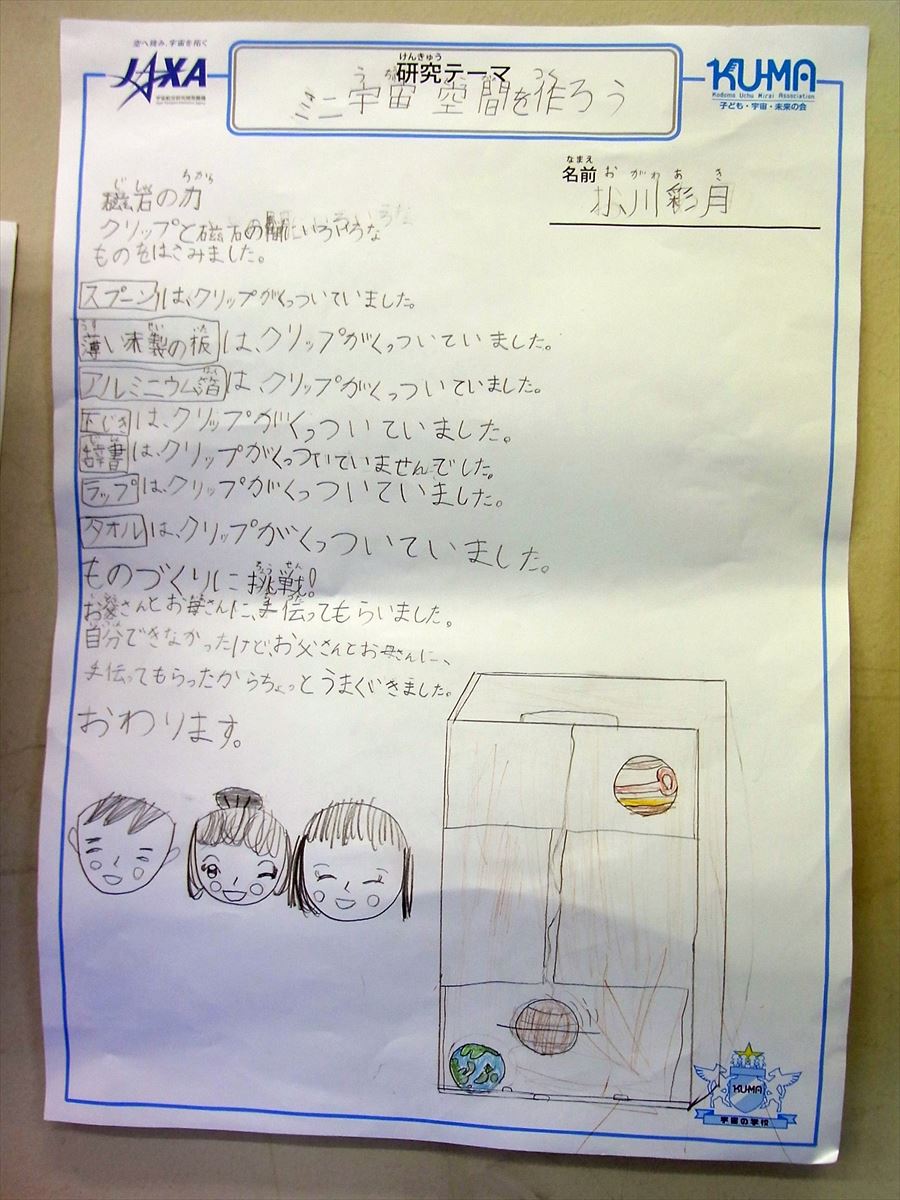 空へ挑み、宇宙を拓く
JAXA
宇宙航空研究開発機構
けんきゅう
研究テーマ
ミニ宇宙空間を作ろう
KU-MA
Kodomo Uchu Mirai Association
子ども・宇宙・未来の会
なまえ
名前
おがわあき
小川彩月
じしゃく ちから
磁石の力
クリップと磁石の間にいろいろな
ものをはこみました。
スプーンは、クリップがくっついていました。
うす せい いた
薄い木製の板は、クリップがくっついていました。
アルミニウム箔は、クリップがくっついていました。
下じきは、クリップがくっついていました。
じしょ
辞書は、クリップがくっついていませんでした。
ラップは、クリップがくっついていました。
タオルは、クリップがくっついていました。
ちょうせん
ものづくりに挑戦!
お父さんとお母さんに、手伝ってもらいました。
自分できなかったけど、お父さんとお母さんに、
手伝ってもらったからちょっとうまくいきました。
おわります。
KU-MA
宇宙の学校